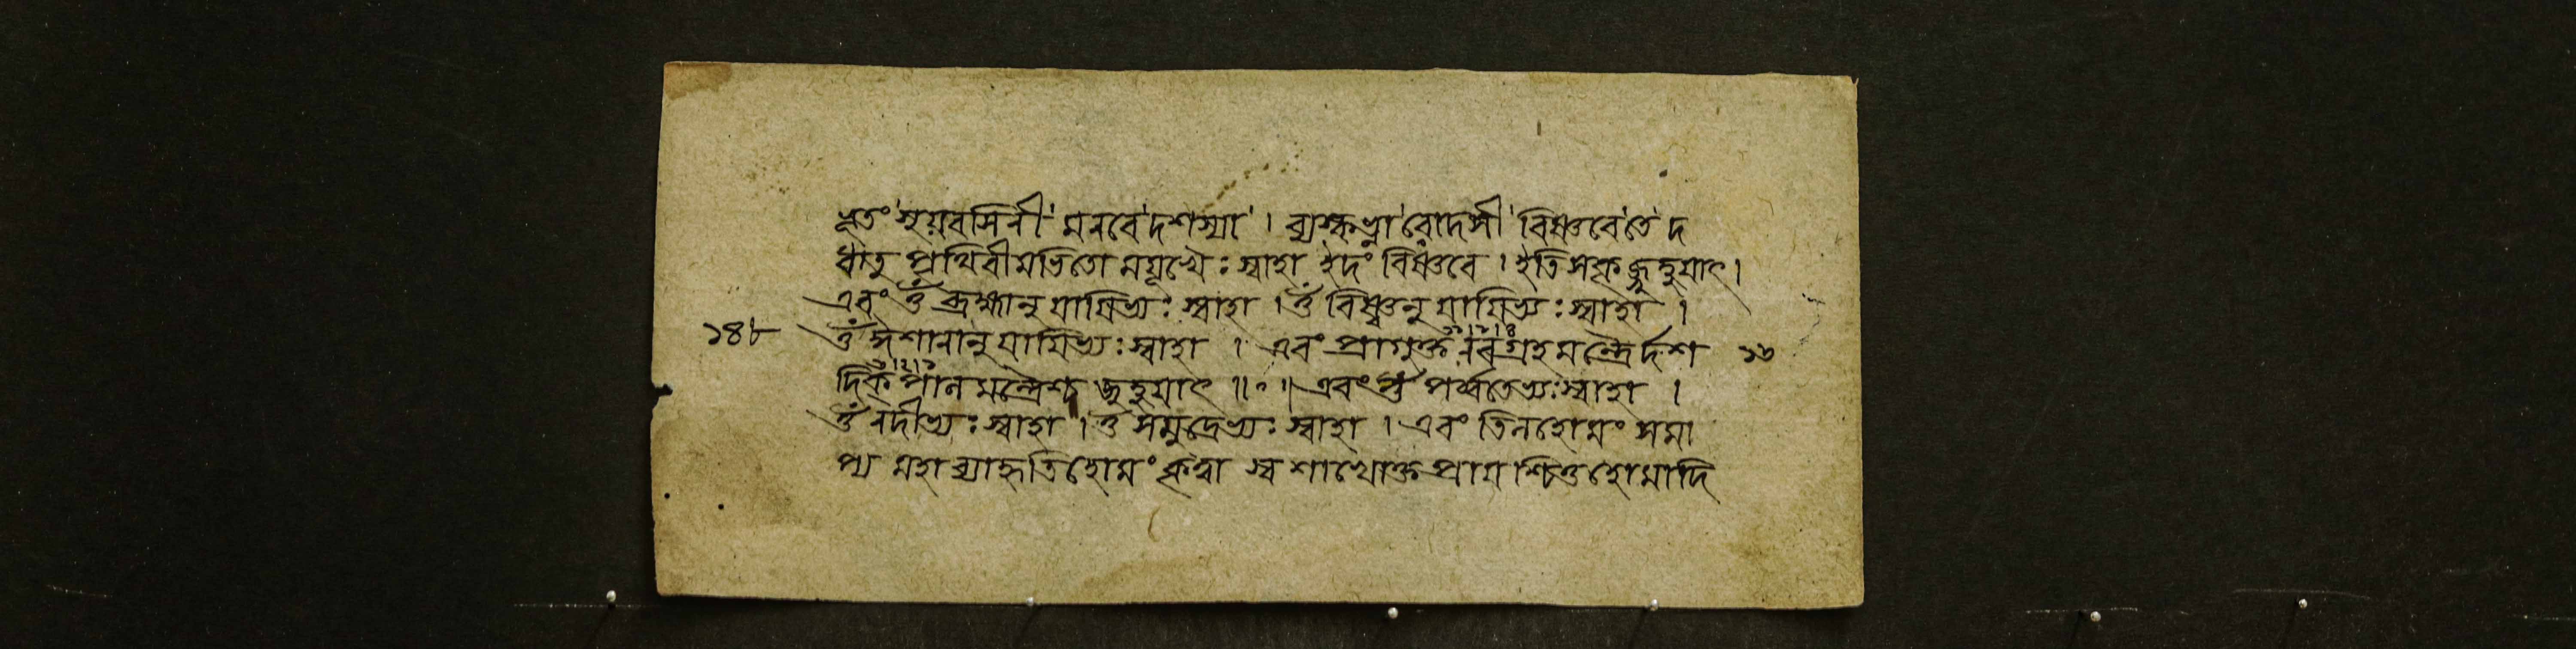 ভূতং সূয়বসিনী মনবে দশস্যা । ব্যস্কভ্না রোদসী বিষ্ণবে তে দ
ধাতু পৃথিবীমভিতো ময়ূখৈঃ স্বাহা ইদং বিষ্ণবে । ইতি সকৃজ্জুহুয়াৎ ।
এবং ওঁ ব্রহ্মানুযায়িভ্যঃ স্বাহা । ওঁ বিষ্ণ্বনুযায়িভ্যঃ স্বাহা ।
১৪৮ ওঁ ঈশানানুযায়িভ্যঃ স্বাহা । এবং প্রাগুক্ত নবগ্রহমন্ত্রৈর্দশ
দিক্‌পাল মন্ত্রৈশ্চ জুহুয়াৎ ॥০॥ এবং ওঁ পর্ব্বতেভ্যঃ স্বাহা ।
ওঁ নদীভ্যঃ স্বাহা । ওঁ সমুদ্রেভ্যঃ স্বাহা । এবং তিলহোমং সমা
প্য মহাব্যাহৃতিহোমং কৃত্বা স্বশাখোক্ত প্রায়শ্চিত্তহোমাদি